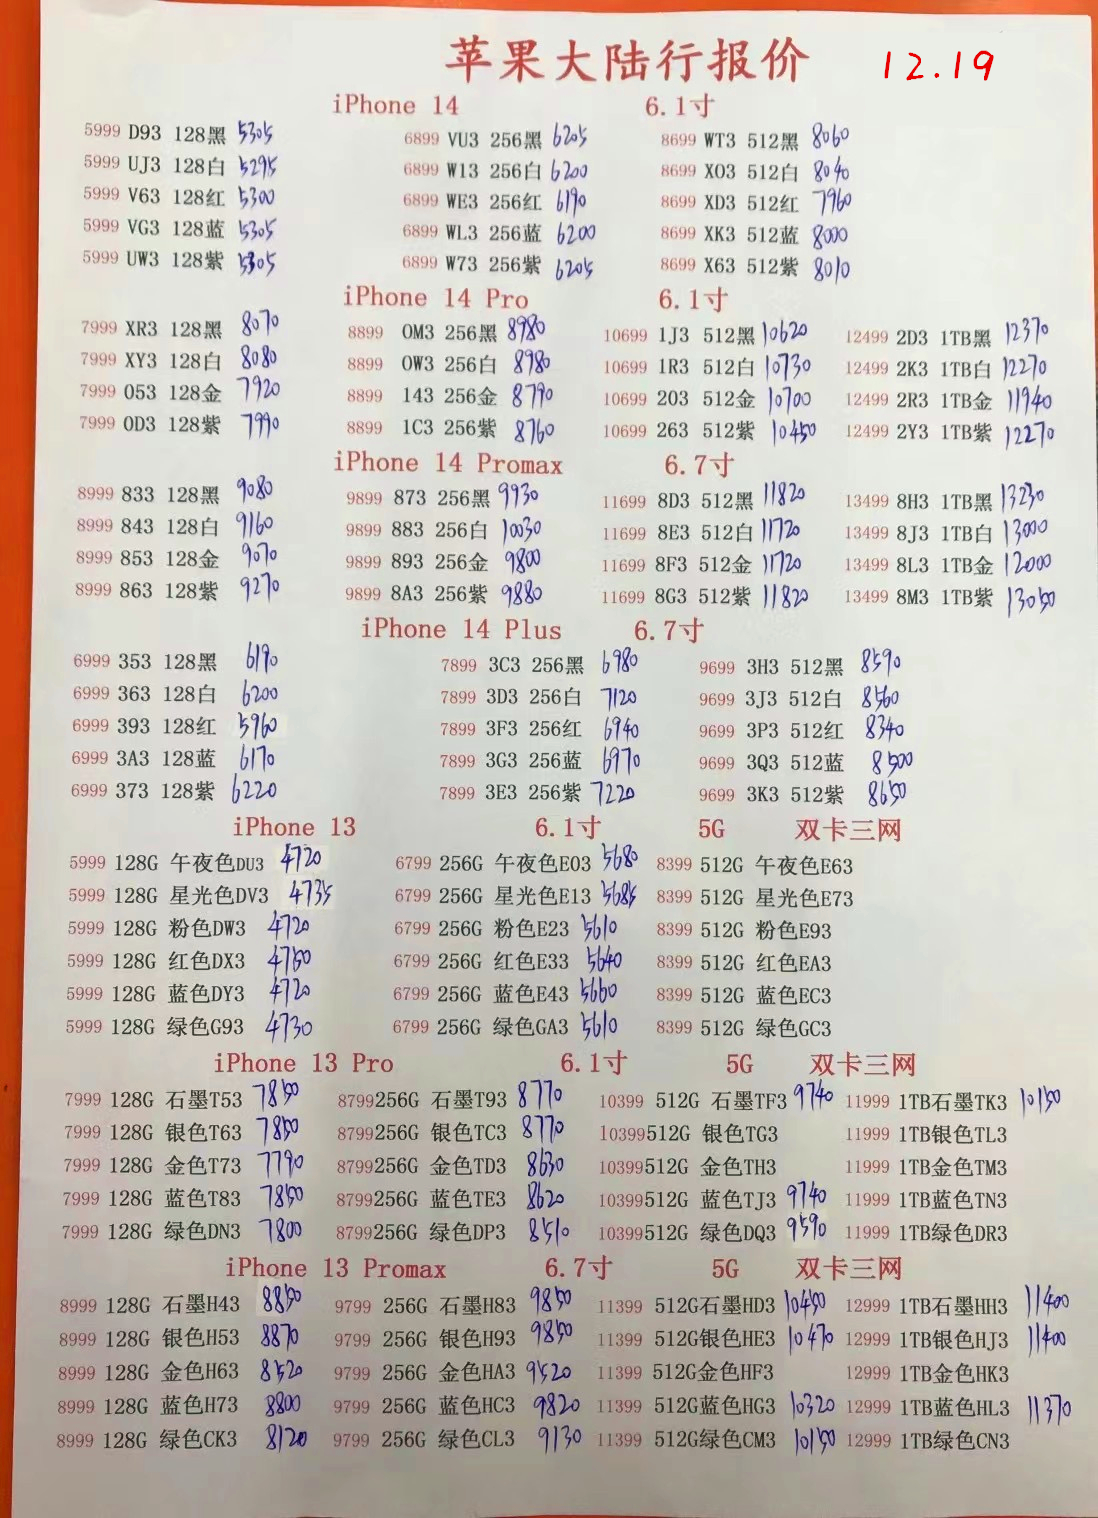 苹果大陆行报价 12.19
iPhone 14 6.1寸
5999 D93 128黑 5305 6899 VU3 256黑 6205 8699 WT3 512黑 8060
5999 UJ3 128白 5295 6899 W13 256白 6200 8699 X03 512白 8040
5999 V63 128红 5300 6899 WE3 256红 6190 8699 XD3 512红 7960
5999 VG3 128蓝 5305 6899 WL3 256蓝 6200 8699 XK3 512蓝 8000
5999 UW3 128紫 5305 6899 W73 256紫 6205 8699 X63 512紫 8010
iPhone 14 Pro 6.1寸
7999 XR3 128黑 8070 8899 0M3 256黑 8980 10699 1J3 512黑 10620 12499 2D3 1TB黑 12370
7999 XY3 128白 8080 8899 0W3 256白 8980 10699 1R3 512白 10730 12499 2K3 1TB白 12270
7999 053 128金 7920 8899 143 256金 8790 10699 203 512金 10700 12499 2R3 1TB金 11940
7999 0D3 128紫 7990 8899 1C3 256紫 8760 10699 263 512紫 10450 12499 2Y3 1TB紫 12270
iPhone 14 Promax 6.7寸
8999 833 128黑 9080 9899 873 256黑 9930 11699 8D3 512黑 11820 13499 8H3 1TB黑 13230
8999 843 128白 9160 9899 883 256白 10030 11699 8E3 512白 11720 13499 8J3 1TB白 13000
8999 853 128金 9070 9899 893 256金 9800 11699 8F3 512金 11720 13499 8L3 1TB金 12000
8999 863 128紫 9270 9899 8A3 256紫 9880 11699 8G3 512紫 11820 13499 8M3 1TB紫 13050
iPhone 14 Plus 6.7寸
6999 353 128黑 6190 7899 3C3 256黑 6980 9699 3H3 512黑 8590
6999 363 128白 6200 7899 3D3 256白 7120 9699 3J3 512白 8560
6999 393 128红 5960 7899 3F3 256红 6940 9699 3P3 512红 8340
6999 3A3 128蓝 6170 7899 3G3 256蓝 6970 9699 3Q3 512蓝 8500
6999 373 128紫 6220 7899 3E3 256紫 7220 9699 3K3 512紫 8650
iPhone 13 6.1寸 5G 双卡三网
5999 128G 午夜色DU3 4720 6799 256G 午夜色E03 5680 8399 512G 午夜色E63
5999 128G 星光色DV3 4735 6799 256G 星光色E13 5685 8399 512G 星光色E73
5999 128G 粉色DW3 4720 6799 256G 粉色E23 5610 8399 512G 粉色E93
5999 128G 红色DX3 4750 6799 256G 红色E33 5640 8399 512G 红色EA3
5999 128G 蓝色DY3 4720 6799 256G 蓝色E43 5660 8399 512G 蓝色EC3
5999 128G 绿色G93 4730 6799 256G 绿色GA3 5610 8399 512G 绿色GC3
iPhone 13 Pro 6.1寸 5G 双卡三网
7999 128G 石墨T53 7850 8799256G 石墨T93 8770 10399 512G 石墨TF3 9740 11999 1TB石墨TK3 10150
7999 128G 银色T63 7850 8799256G 银色TC3 8770 10399512G 银色TG3 11999 1TB银色TL3
7999 128G 金色T73 7790 8799256G 金色TD3 8630 10399512G 金色TH3 11999 1TB金色TM3
7999 128G 蓝色T83 7850 8799256G 蓝色TE3 8620 10399512G 蓝色TJ3 9740 11999 1TB蓝色TN3
7999 128G 绿色DN3 7800 8799256G 绿色DP3 8510 10399512G 绿色DQ3 9590 11999 1TB绿色DR3
iPhone 13 Promax 6.7寸 5G 双卡三网
8999 128G 石墨H43 8850 9799 256G 石墨H83 9850 11399 512G石墨HD3 10450 12999 1TB石墨HH3 11400
8999 128G 银色H53 8870 9799 256G 银色H93 9850 11399 512G银色HE3 10470 12999 1TB银色HJ3 11400
8999 128G 金色H63 8520 9799 256G 金色HA3 9520 11399 512G金色HF3 12999 1TB金色HK3
8999 128G 蓝色H73 8800 9799 256G 蓝色HC3 9820 11399 512G蓝色HG3 10320 12999 1TB蓝色HL3 11370
8999 128G 绿色CK3 8120 9799 256G 绿色CL3 9130 11399 512G绿色CM3 10150 12999 1TB绿色CN3